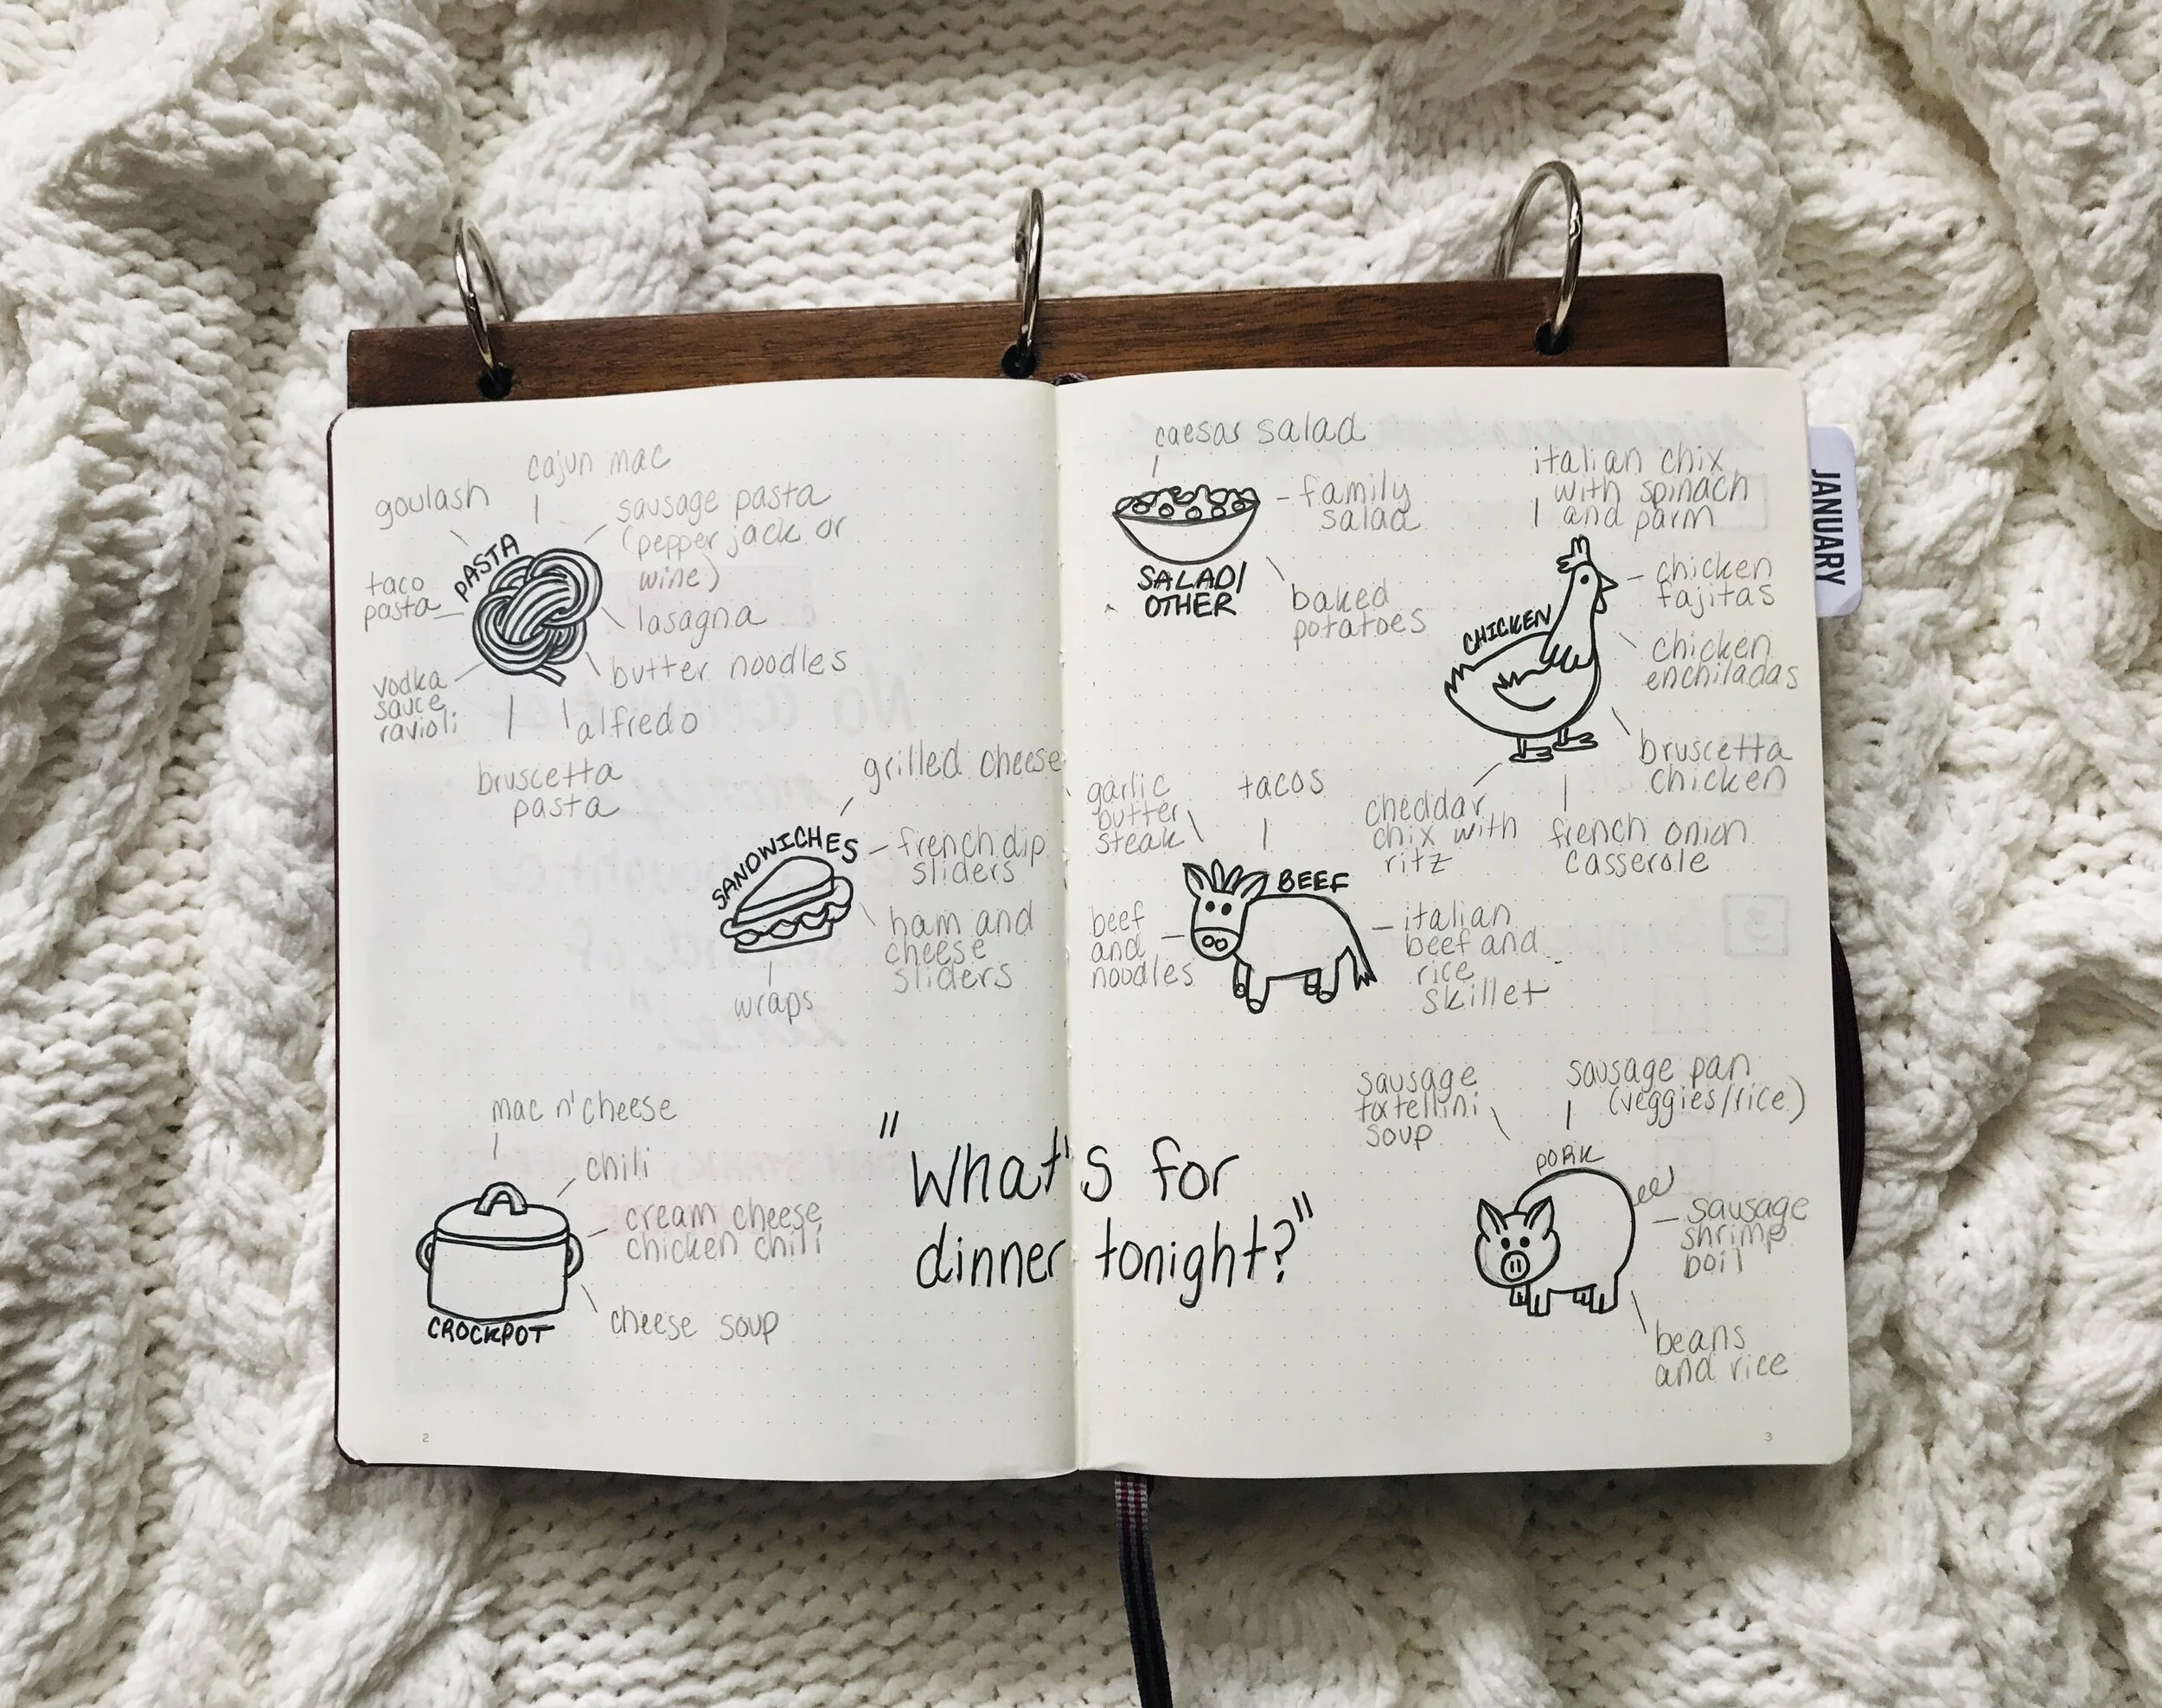 cajun mac
goulash
sausage pasta
(pepper jack or
wine)
PASTA
taco
pasta
lasagna
butter noodles
vodka
sauce
ravioli
alfredo
bruscetta
pasta
grilled cheese
SANDWICHES
french dip
sliders
ham and
cheese
sliders
wraps
mac n' cheese
chili
cream cheese
chicken chili
cheese soup
CROCKPOT
"What's for
dinner tonight?"
2
caesar salad
family
salad
SALAD/
OTHER
baked
potatoes
italian chix
with spinach
and parm
chicken
fajitas
CHICKEN
chicken
enchiladas
bruscetta
chicken
cheddar
chix with
ritz
french onion
casserole
garlic
butter
steak
tacos
BEEF
beef
and
noodles
italian
beef and
rice
skillet
sausage
tortellini
soup
sausage pan
(veggies/rice)
PORK
sausage
shrimp
boil
beans
and rice
3
JANUARY